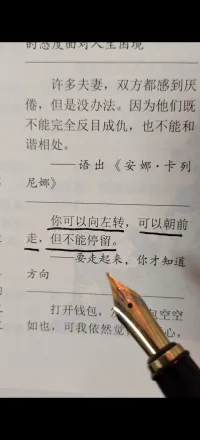 的态度面对人生困境
许多夫妻，双方都感到厌
倦，但是没办法。因为他们既
不能完全反目成仇，也不能和
谐相处。
——语出《安娜·卡列
尼娜》
你可以向左转，可以朝前
走，但不能停留。
——要走起来，你才知道
方向
打开钱包，包空空
如也，可我依然觉心，